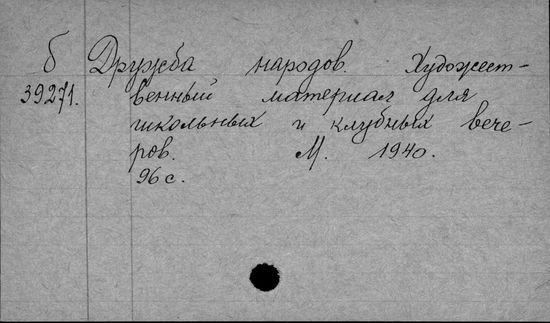 б Дружба народов. Художест-
39271. венный материал для
школьных и клубных вече-
ров. М. 1940.
96 с.